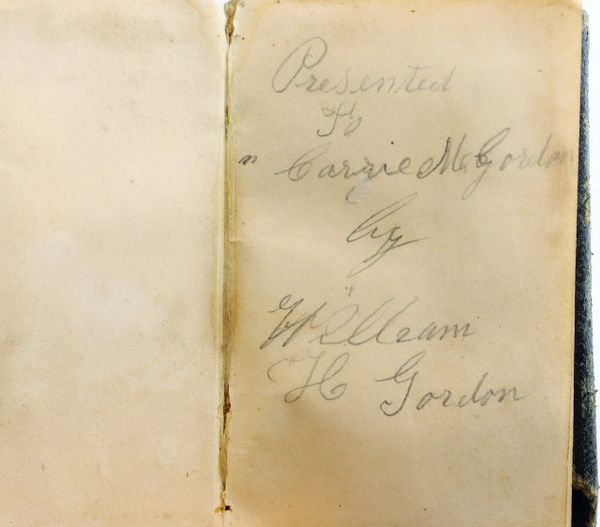 Presented
To
" Carrie M. Gordon
by
William
H Gordon